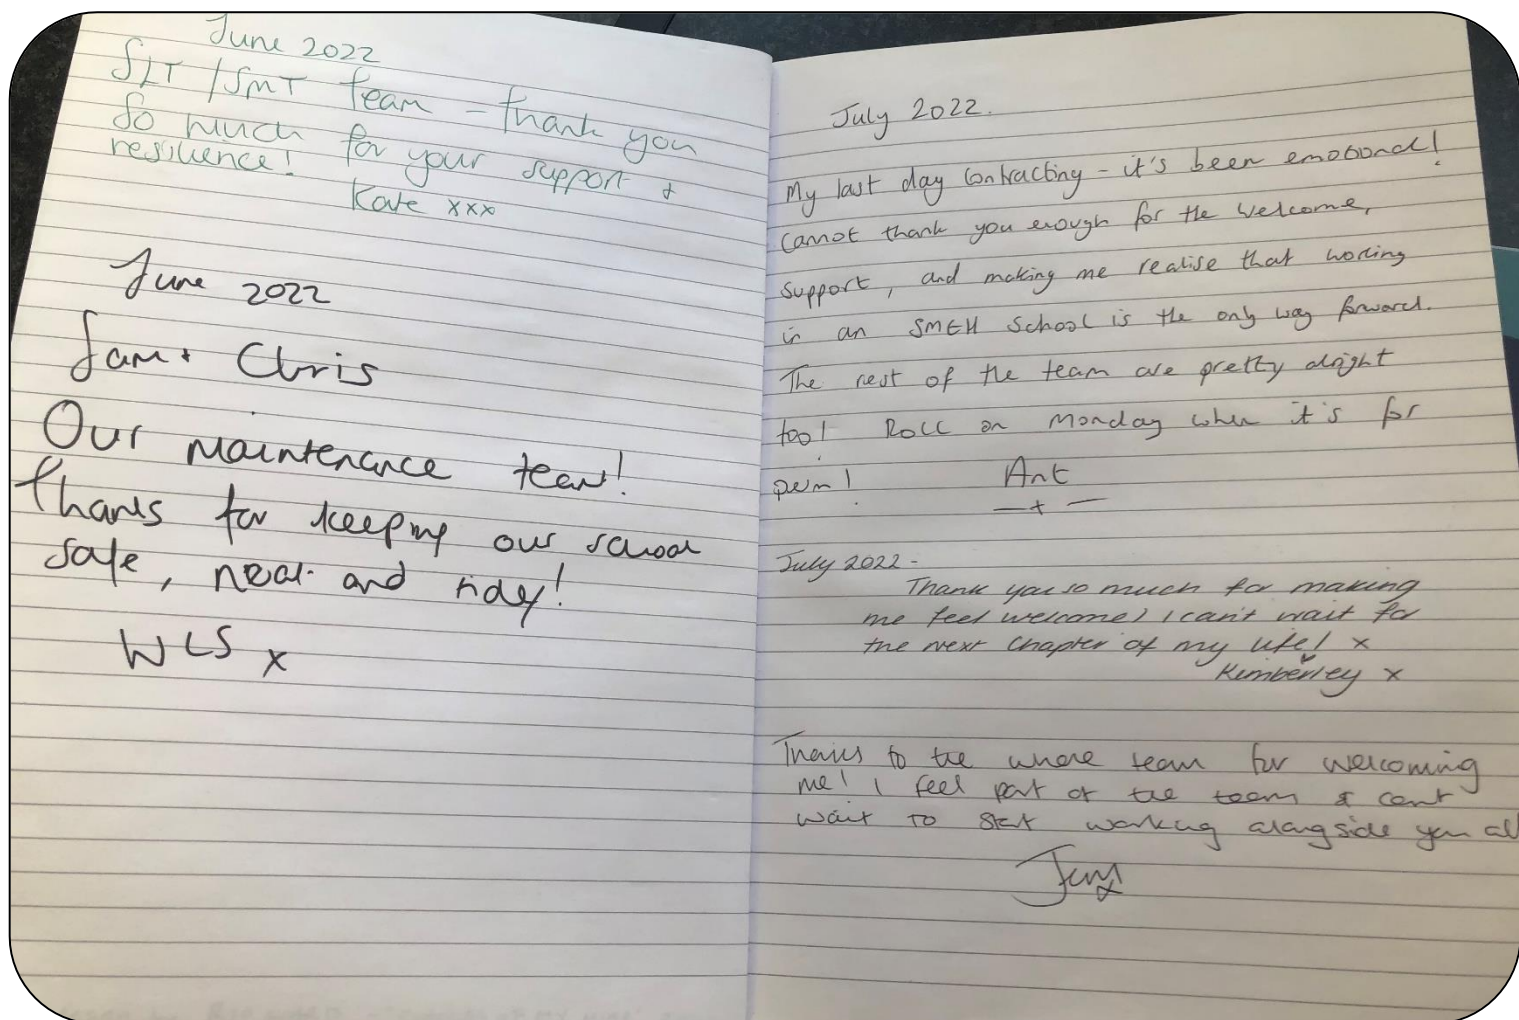 June 2022
SLT / SMT team - thank you
so much for your support +
resilience!
Kate xxx
June 2022
Sam + Chris
Our maintenance team!
Thanks for keeping our school
safe, neat and tidy!
WLS x
July 2022.
My last day contracting - it's been emotional!
Cannot thank you enough for the welcome,
support, and making me realise that working
in an SMEH School is the only way forward.
The rest of the team are pretty alright
too! Roll on Monday when it's for
perm!
Ant
July 2022 -
Thank you so much for making
me feel welcome, I can't wait for
the next chapter of my life! x
Kimberley x
Thanks to the whole team for welcoming
me! I feel part of the team & cant
wait to start working alongside you all